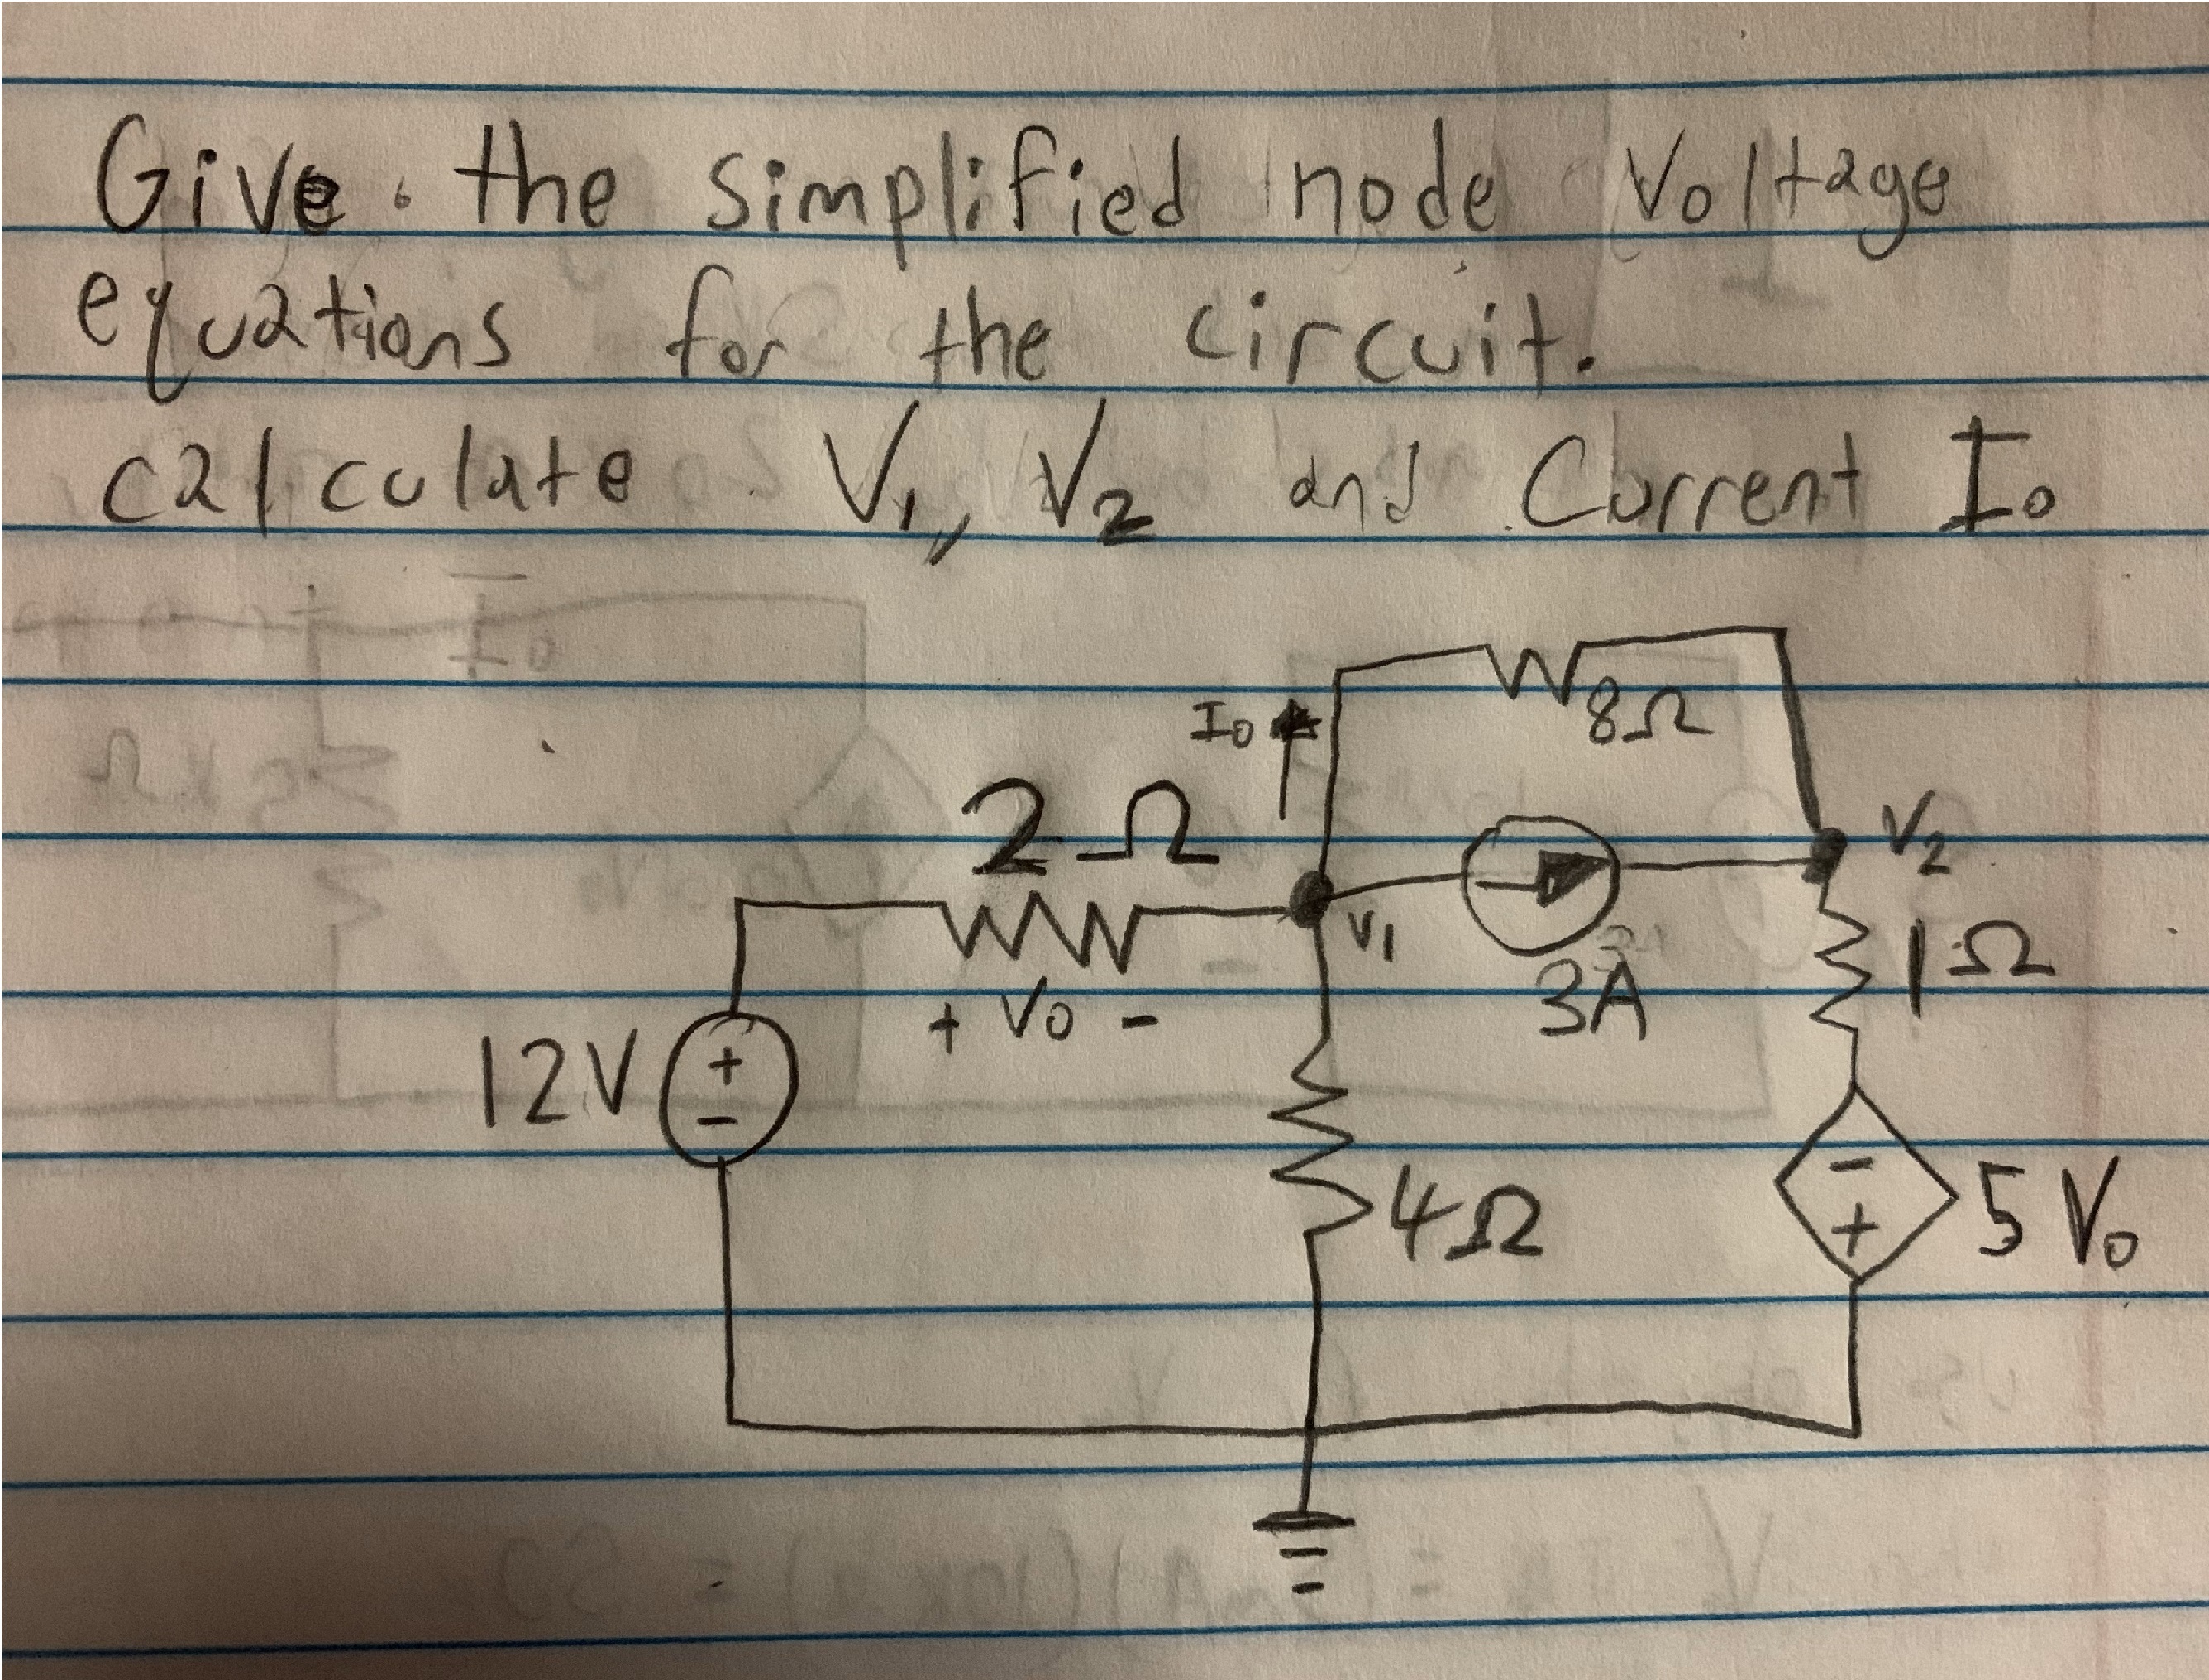 Give the simplified node Voltage
equations for the circuit.
calculate V₁, V₂ and Current I₀
8Ω
I₀
2Ω
V₂
V₁
1Ω
3A
+ V₀ -
12V
+
-
4Ω
-
+
5V₀